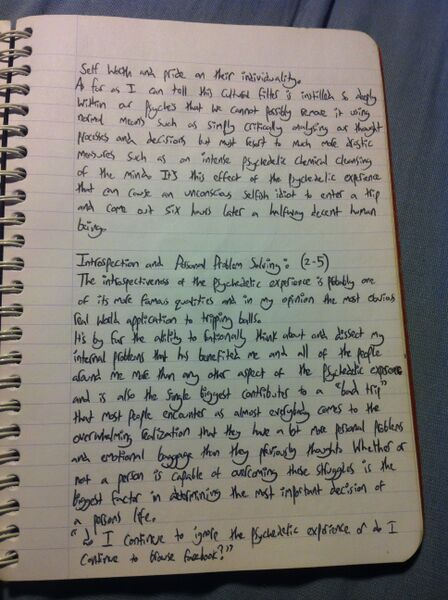 Self Worth and pride on their individuality.
As far as I can tell this cultural filter is instilled so deeply
within our psyche's that we cannot possibly remove it using
normal means such as simply critically analysing our thought
processes and decisions but must resort to much more drastic
measures such as an intense psychedelic chemical cleansing
of the mind. It's this effect of the psychedelic experience
that can cause an unconscious selfish idiot to enter a trip
and come out six hours later a halfway decent human
being.
Introspection and Personal Problem Solving: (2-5)
The introspectiveness of the psychedelic experience is probably one
of its more famous qualities and in my opinion the most obvious
real world application to tripping balls.
It's by far the ability to rationally think about and dissect my
internal problems that has benefited me and all of the people
around me more than any other aspect of the psychedelic experience
and is also the single biggest contributer to a "bad trip"
that most people encounter as almost everybody comes to the
overwhelming realization that they have a lot more personal problems
and emotional baggage than they previously thought. Whether or
not a person is capable of overcoming these struggles is the
biggest factor in determining the most important decision of
a persons life.
"do I continue to ignore the psychedelic experience or do I
continue to browse facebook?"